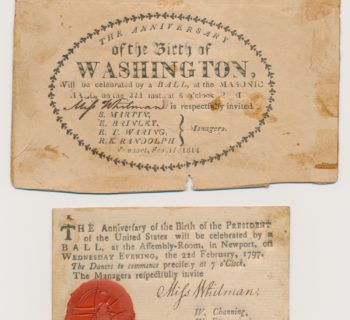 THE ANNIVERSARY
of the Birth of
WASHINGTON,
Will be celebrated by a BALL, at the MASONIC
HALL, on the 22d inst. at 6 o'clock
Miss Whitman is respectfully invited.
S. MARTIN,
E. BRINLEY,
E. T. WARING,
R. K. RANDOLPH
Managers.
1814
THE Anniversary of the Birth of the PRESIDENT
of the United States will be celebrated by a
BALL, at the Assembly-Room, in Newport, on
WEDNESDAY EVENING, the 22d February, 1797.
The Dances to commence precisely at 7 o'Clock.
The Managers respectfully invite
Miss Whitman,
W. Channing,